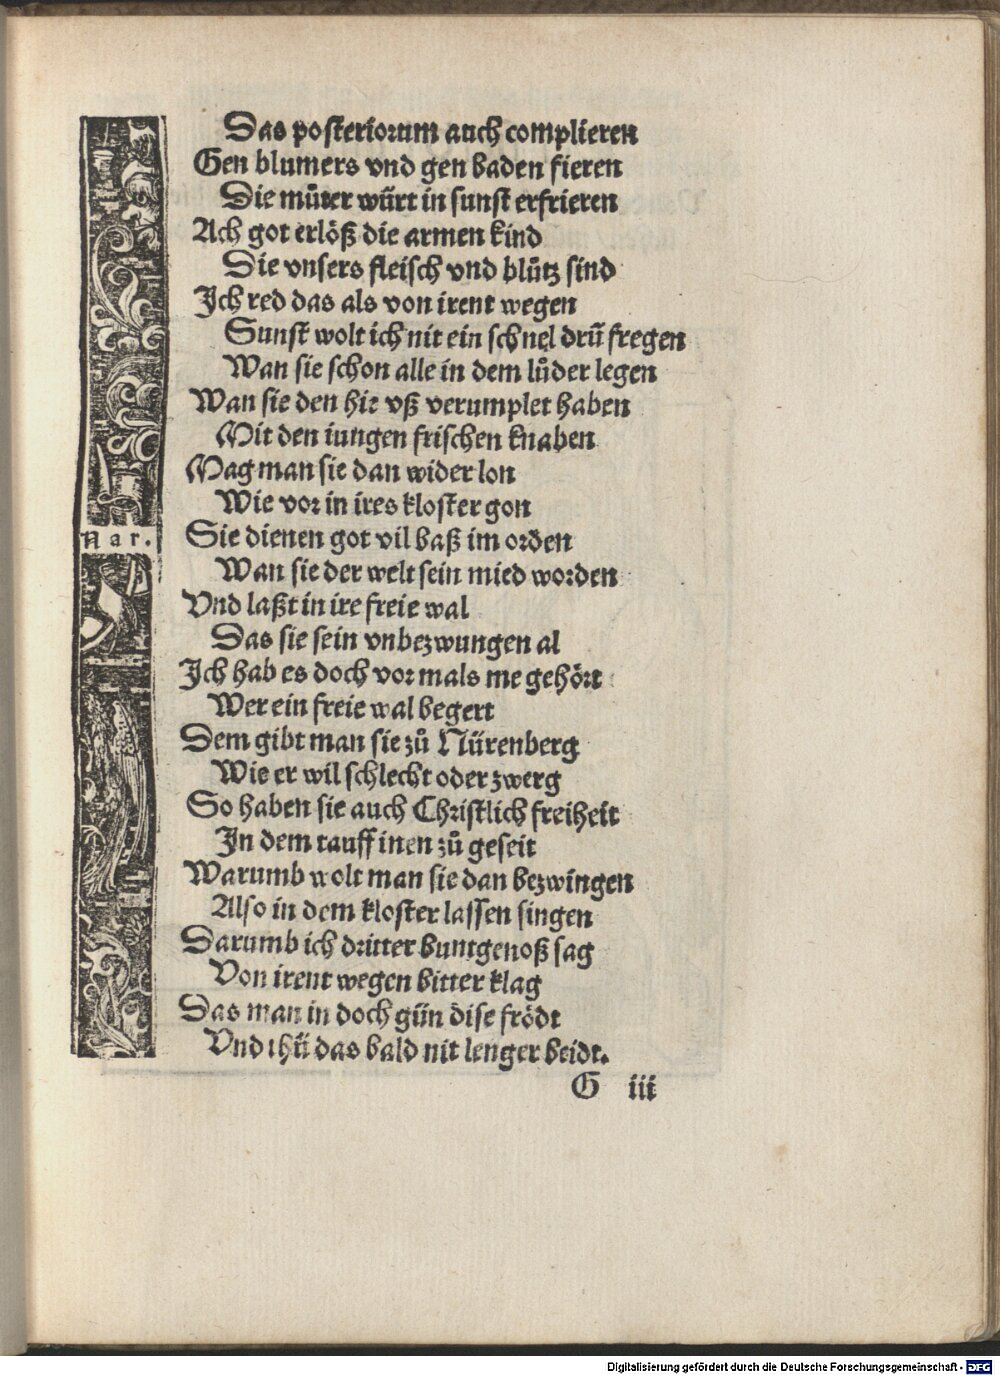 Das posteriorum auch complieren
Gen blumers vnd gen baden fieren
Die mu̇ter würt in sunst erfrieren
Ach got erlöß die armen kind
Die vnsers fleisch vnd blůtz sind
Ich red das als von irent wegen
Sunst wolt ich nit ein schnel drū fregen
Wan sie schon alle in dem lůder legen
Wan sie den hie vß verumplet haben
Mit den iungen frischen knaben
Mag man sie dan wider lon
Wie vor in ires kloster gon
Nar.
Sie dienen got vil baß im orden
Wan sie der welt sein mied worden
Vnd laßt in ire freie wal
Das sie sein vnbezwungen al
Ich hab es doch vor mals me gehört
Wer ein freie wal begert
Dem gibt man sie zů Nürenberg
Wie er wil schlecht oder zwerg
So haben sie auch Christlich freiheit
In dem tauff inen zů geseit
Warumb wolt man sie dan bezwingen
Also in dem kloster lassen singen
Darumb ich dritter buntgenoß sag
Von irent wegen bitter klag
Das man in doch gün dise frödt
Vnd thü das bald nit lenger beidt.
G iii
Digitalisierung gefördert durch die Deutsche Forschungsgemeinschaft - DFG